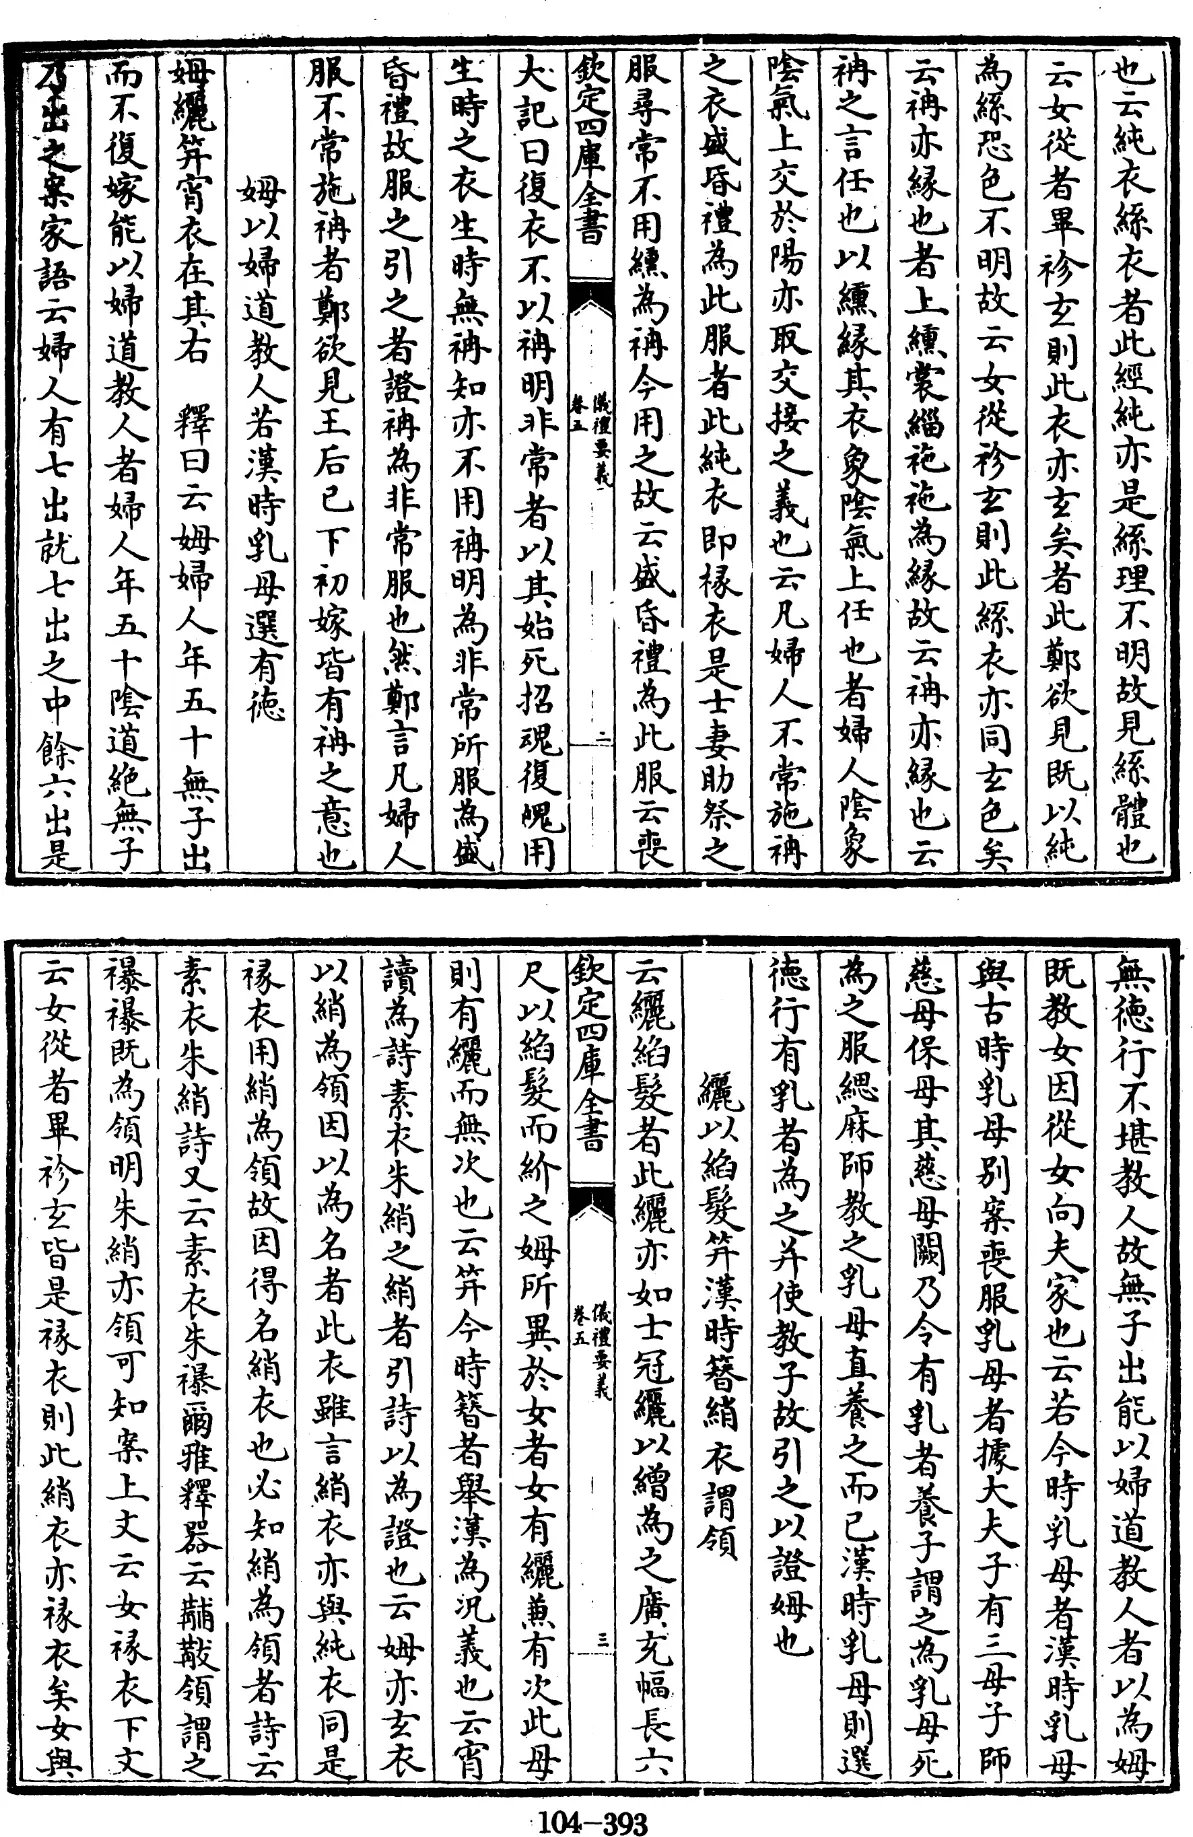 也云純衣絲衣者此經純亦是絲理不明故見絲體也
云女從者畢袗玄則此衣亦玄矣者此鄭欲見既以純
為絲恐色不明故云女從袗玄則此絲衣亦同玄色矣
云袡亦緣也者上纁裳緇袘袘為緣故云袡亦緣也云
袡之言任也以纁緣其衣象陰氣上任也者婦人陰象
陰氣上交於陽亦取交接之義也云凡婦人不常施袡
之衣盛昏禮為此服者此純衣即褖衣是士妻助祭之
服尋常不用纁為袡今用之故云盛昏禮為此服云喪
欽定四庫全書
儀禮要義
卷五
二
大記曰復衣不以袡明非常者以其始死招魂復魄用
生時之衣生時無袡知亦不用袡明為非常所服為盛
昏禮故服之引之者證袡為非常服也然鄭言凡婦人
服不常施袡者鄭欲見王后已下初嫁皆有袡之意也
姆以婦道教人若漢時乳母選有徳
姆纚笄宵衣在其右 釋曰云姆婦人年五十無子出
而不復嫁能以婦道教人者婦人年五十陰道絶無子
乃出之案家語云婦人有七出就七出之中餘六出是
無徳行不堪教人故無子出能以婦道教人者以為姆
既教女因從女向夫家也云若今時乳母者漢時乳母
與古時乳母別案喪服乳母者據大夫子有三母子師
慈母保母其慈母闕乃令有乳者養子謂之為乳母死
為之服緦麻師教之乳母直養之而已漢時乳母則選
徳行有乳者為之并使教子故引之以證姆也
纚以縚髮笄漢時簪綃衣謂領
云纚縚髮者此纚亦如士冠纚以繒為之廣充幅長六
欽定四庫全書
儀禮要義
卷五
三
尺以縚髮而紒之姆所異於女者女有纚兼有次此母
則有纚而無次也云笄今時簪者舉漢為況義也云宵
讀為詩素衣朱綃之綃者引詩以為證也云姆亦玄衣
以綃為領因以為名者此衣雖言綃衣亦與純衣同是
褖衣用綃為領故因得名綃衣也必知綃為領者詩云
素衣朱綃詩又云素衣朱襮爾雅釋器云黼黻領謂之
襮襮既為領明朱綃亦領可知案上文云女褖衣下文
云女從者畢袗玄皆是褖衣則此綃衣亦褖衣矣女與
104-393